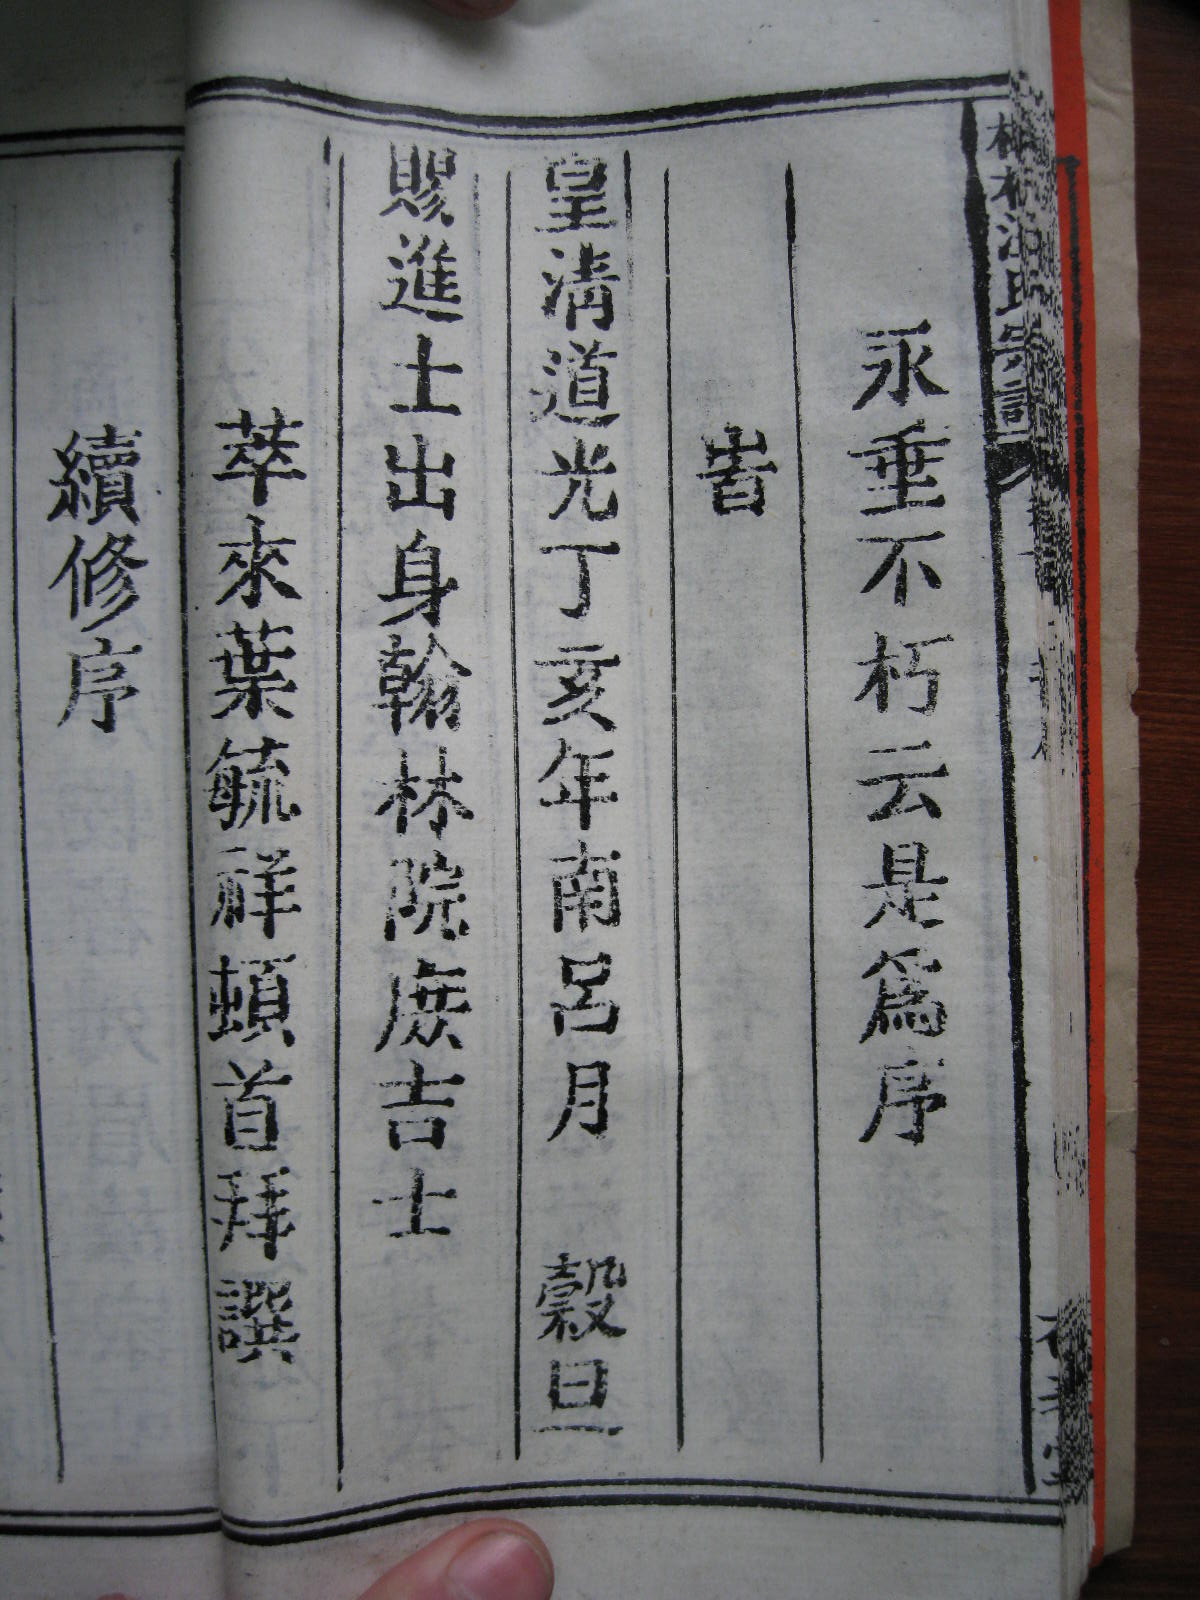 永垂不朽云是爲序
旹
皇清道光丁亥年南呂月 穀旦
賜進士出身翰林院庻吉士
萃來葉毓祥頓首拜撰
續修序